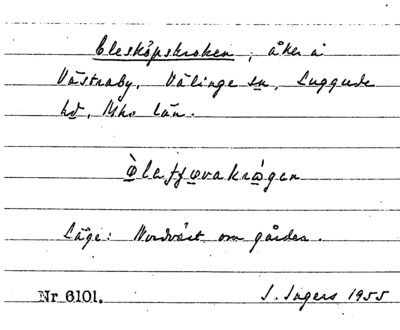 Oleskåpskroken, åker å
Västraby, Välinge sn, Luggude
hd, Mhs län.
Ò̲lafʃo̲vakrò̲gen
Läge: Nordväst om gården.
Nr 6101. I. Ingers 1955